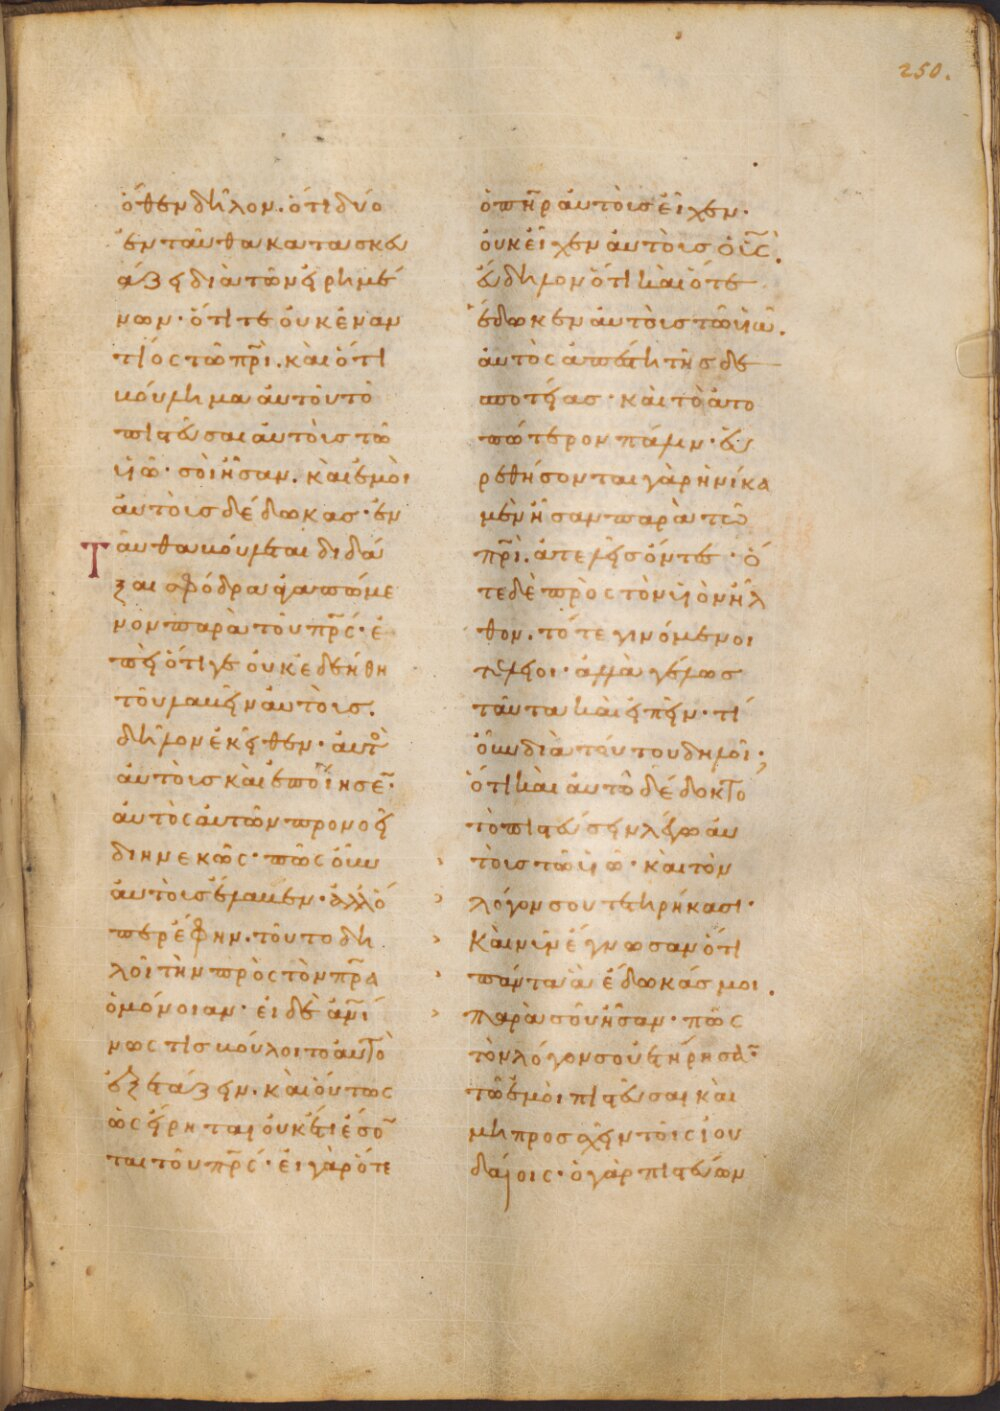 250.
ὅθεν δῆλον. ὅτι δύο
ἐνταῦθα κατασκευ
άζει διὰ τῶν εἰρημέ
νων· ὅτι τε οὐκ ἐναν
τίος τῶ πρῖ. καὶ ὅτι
βούλημα αὐτοῦ τὸ
πιστεῦσαι αὐτοῖς τῶ
υἱῶ· σοὶ ἦσαν. καὶ ἐμοὶ
αὐτοῖς δέδωκας· ἐν
Ταῦθα βούλεται διδά
ξαι σφόδρα ἀγαπώμε
νον παρὰ τοῦ πρς· ἐ
πεὶ ὅτι γε οὐκ ἐδεήθη
τοῦ λαβεῖν αὐτοῖς.
δῆλον ἐκεῖθεν· αὐτὸ
αὐτοῖς καὶ ἐποίησε·
αὐτὸς αὐτῶν προνοεῖ
διηνεκῶς· πῶς οὖν
αὐτοῖς ἔλαβεν· ἀλλ' ὅ
περ ἔφην. τοῦτο δη
λοῖ τὴν πρὸς τὸν πρα
ὁμόνοιαν· εἰ δὲ ἀνι
νως τίς βούλοιτο αὐτὸ
ἐξετάζειν. καὶ οὕτως
ὡς εἴρηται οὐκέτι ἔσο
ται τοῦ πρς· εἰ γὰρ ὅτε
ὁ πηρ αὐτοῖς εἶχεν·
οὐκ εἶχεν αὐτοῖς ὁ υἱς.
εὔδηλον ὅτι καὶ ὅτε
ἔδωκεν αὐτοῖς τῶ υἱῶ.
αὐτὸς ἀπέστη τῆς δε
σποτείας· καὶ τὸ ἀτο
πώτερον πάλιν· εὑ
ρεθήσονται γὰρ ἡνίκα
μὲν ἦσαν παρὰ τῶ
πρι. ἀτελεῖς ὄντες· ὅ
τε δὲ πρὸς τὸν υἱὸν ἦλ
θον. τότε γινόμενοι
τέλειοι· ἀλλὰ γέλως
ταῦτα καὶ εἰπεῖν· τί
οὖν διὰ τούτου δηλοῖ;
ὅτι καὶ αὐτῶ δέδοκτο
τὸ πιστεύσειν λέγω αὐ
τοῖς τῶ υἱῶ· καὶ τὸν
λόγον σου τετηρήκασι·
Καὶ νῦν ἔγνωσαν ὅτι
πάντα ἃ ἔδωκάς μοι.
παρὰ σοῦ ἦσαν· πῶς
τὸν λόγον σου ἐτήρησαν·
τῶ ἐμοὶ πιστεῦσαι καὶ
μὴ προσχεῖν τοῖς ἰου
δαίοις· ὁ γὰρ πιστεύων